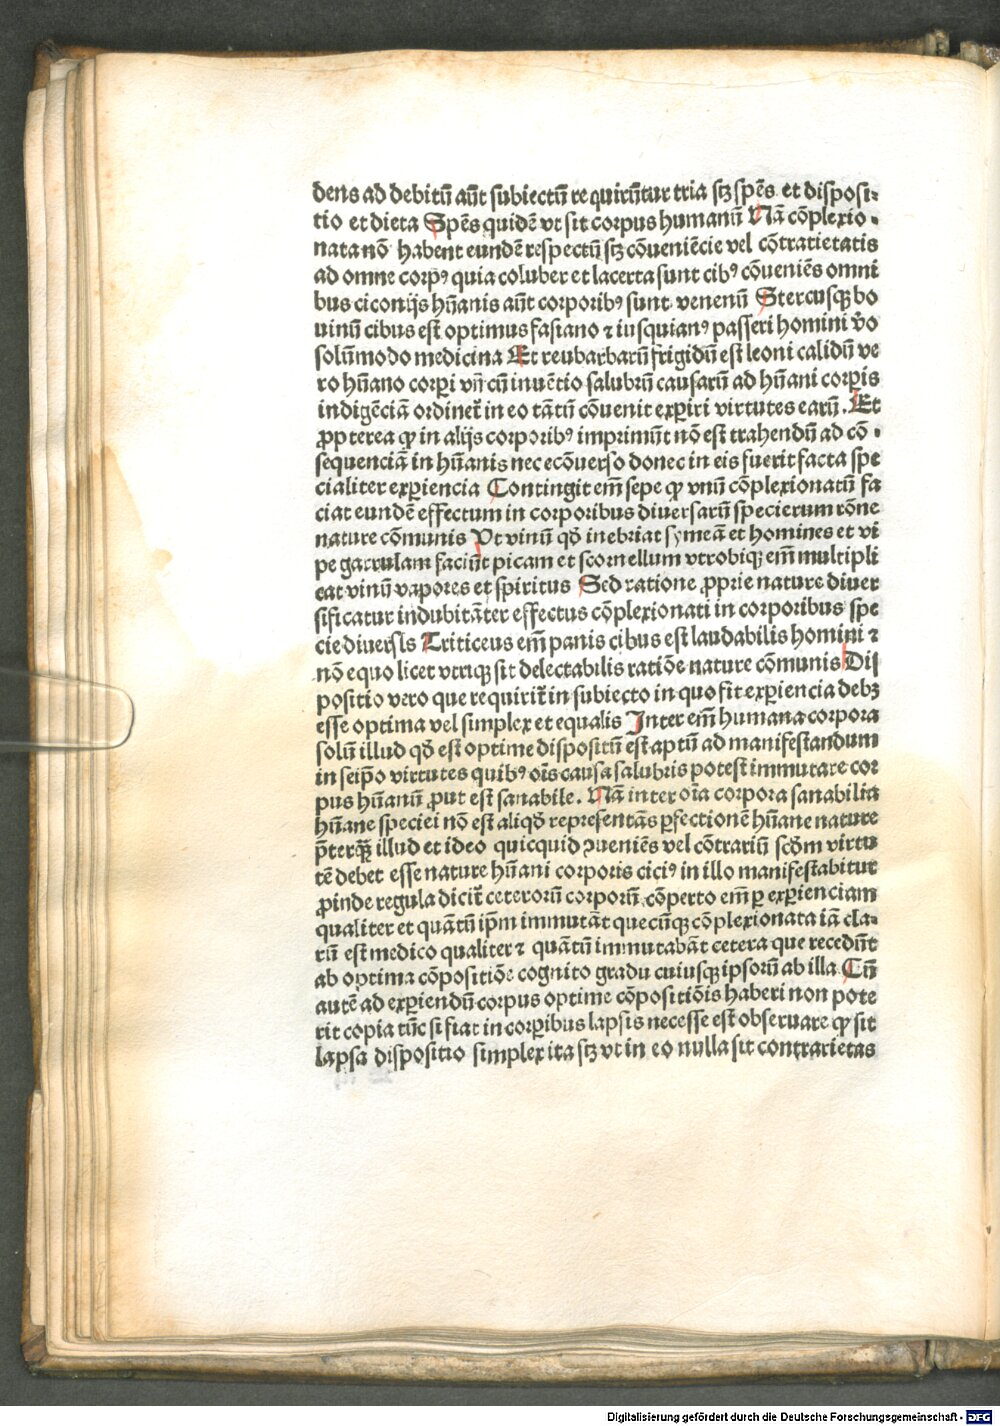 dens ad debitū aūt subiectū re quirūtur tria scꝫ spēs et disposi⸗
tio et dieta Spēs quidē vt sit corpus humanū Nā cōplexio⸗
nata nō habent eundē respectū scꝫ cōueniēcie vel cōtrarietatis
ad omne corpꝰ quia coluber et lacerta sunt cibꝰ cōueniēs omni
bus ciconijs hūanis aūt corporibꝰ sunt venenū Stercusqꝫ bo
uinū cibus est optimus fasiano ⁊ iusquianꝰ passeri homini v̄o
solūmodo medicina Et reubarbarū frigidū est leoni calidū ve
ro hūano corpri vn̄ cū inuētio salubrū causarū ad hūani corpis
indigēciā ordinet̄ in eo tātū cōuenit exꝑiri virtutes earū. Et
ꝓpterea ꝙ in alijs corporibꝰ imprimūt nō est trahendū ad cō⸗
sequenciā in hūanis nec ecōuerso donec in eis fuerit facta spe
cialiter exꝑiencia Contingit em̄ sepe ꝙ vnū cōplexionatū fa
ciat eundē effectum in corporibus diuersarū specierum rōne
nature cōmunis Vt vinū qd̄ inebriat symeā et homines et vi
pe garrulam faciūt picam et scornellum vtrobiqꝫ em̄ multipli
cat vinū vapores et spiritus Sed ratione ꝓprie nature diuer
sificatur indubitāter effectus cōplexionati in corporibus spe
cie diuersis Triticeus em̄ panis cibus est laudabilis homini ⁊
nō equo licet vtriqꝫ sit delectabilis ratiōe nature cōmunis Dis
positio vero que requirit̄ in subiecto in quo fit exꝑiencia debꝫ
esse optima vel simplex et equalis Inter em̄ humana corpora
solū illud qd̄ est optime dispositū est aptū ad manifestandum
in seip̄o virtutes quibꝰ oīs causa salubris potest immutare cor
pus hūanū ꝓut est sanabile. Nā inter oīa corpora sanabilia
hūane speciei nō est aliqd̄ representās ꝑfectionē hūane nature
p̄terqꝫ̄ illud et ideo quicquid ꝯueniēs vel cōtrariū scd̄m virtu
tē debet esse nature hūani corporis ciciꝰ in illo manifestabitur
ꝓinde regula dicit̄ ceterorū corporū cōperto em̄ ꝑ exꝑienciam
qualiter et quātū ip̄m immutāt quecūqꝫ cōplexionata iā cla⸗
rū est medico qualiter ⁊ quātū immutabāt cetera que recedūt
ab optima cōpositiōe cognito gradu cuiusqꝫ ipsorū ab illa Cū
autē ad exꝑiendū corpus optime cōpositiōis haberi non pote
rit copia tūc si fiat in corꝑibus lapsis necesse est obseruare ꝙ sit
lapsa dispositio simplex ita scꝫ vt in eo nulla sit contrarietas
Digitalisierung gefördert durch die Deutsche Forschungsgemeinschaft - DFG